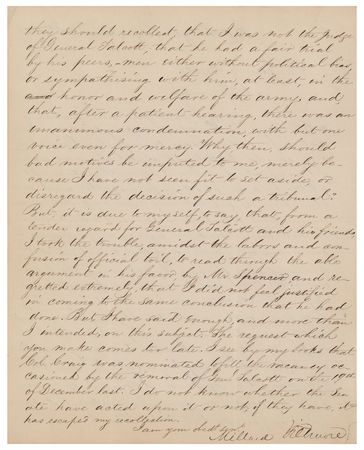 they should recollect, that I was not the judge
of General Talcott, that he had a fair trial
by his peers, men either without political bias,
or sympathising with him, at least, in the
honor and welfare of the army, and
that, after a patient hearing, there was an
unanimous condemnation, with but one
voice even for mercy. Why then, should
bad motives be imputed to me, merely be-
cause I have not seen fit to set aside, or
disregard the decision of such a tribunal?
But, it is due to myself, to say, that, from a
tender regard for General Talcott and his friends,
I took the trouble, amidst the labors and con-
fusion of official toil, to read through the able
argument in his favor by Mr Spencer, and re-
gretted extremely, that I did not feel justified
in coming to the same conclusion that he had
done. But I have said enough, and more than
I intended, on this subject. The request which
you make comes too late. I see by my books that
Col. Craig was nominated to fill the vacancy oc-
casioned by the removal of Genl Talcott on the
of December last. I do not know whether the Sen-
ate have acted upon it or not; if they have, it
has escaped my recollection.
I am your
Millard Fillmore